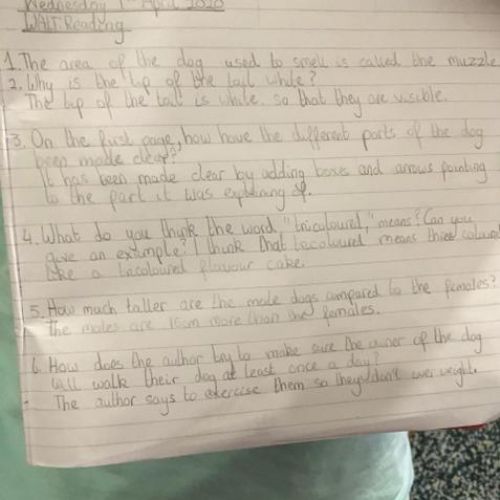 Wednesday 1st April 2020
WALT: Reading
1. The area of the dog used to smell is called the muzzle
2. Why is the tip of the tail white?
The tip of the tail is white so that they are visible.
3. On the first page, how have the different parts of the dog
been made clear?
It has been made clear by adding boxes and arrows pointing
to the part it was explaining of.
4. What do you think the word "tricoloured," means? Can you
give an example? I think that tricoloured means three
like a tricoloured flavour cake.
5. How much taller are the male dogs compared to the females?
The males are more than the females.
6. How does the author try to make sure the owner of the dog
will walk their dog at least once a day?
The author says to exercise them so they don't over weight.